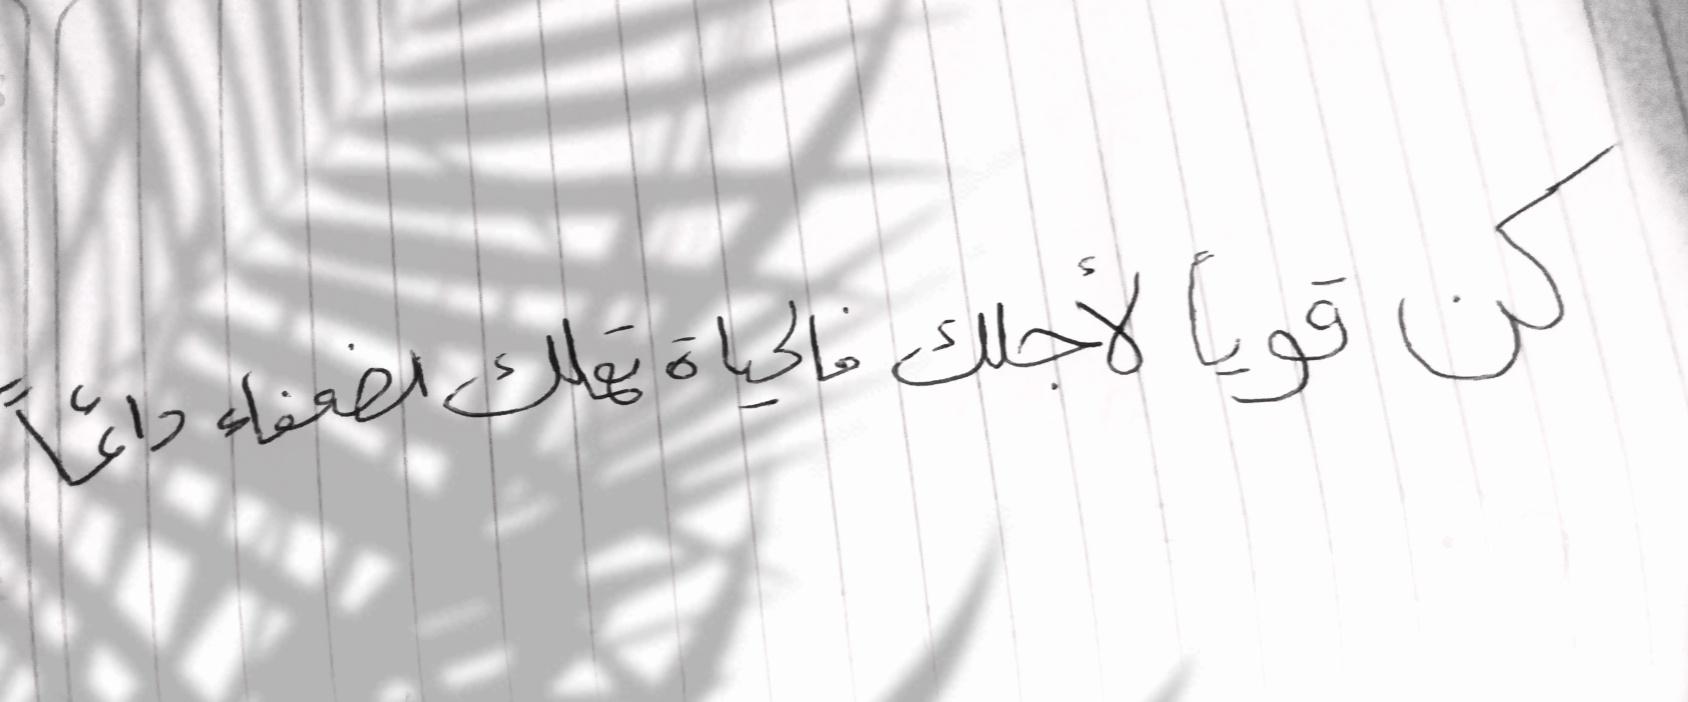 كن قوياً لأجلك فالحياة تهلك اضعفاء دائماً